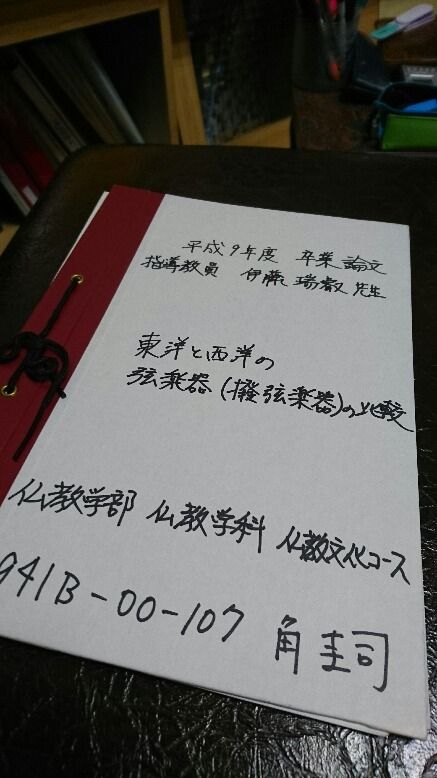 平成9年度 卒業論文
指導教員 伊藤 瑞叡 先生
東洋と西洋の
弦楽器(撥弦楽器)の比較
仏教学部 仏教学科 仏教文化コース
941B-00-107 角圭司